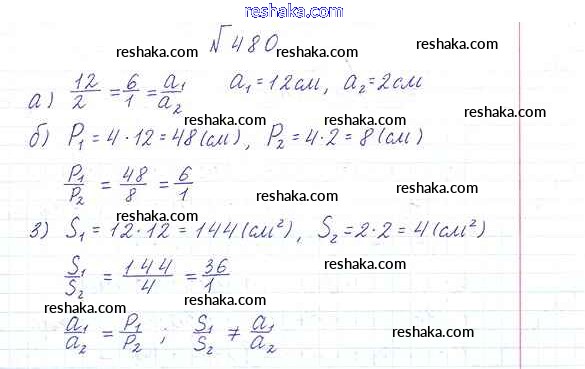 reshaka.com
№480
reshaka.com reshaka.com reshaka.com
а) 12/2 = 6/1 = a₁/a₂ a₁=12см, a₂=2см
reshaka.com reshaka.com reshaka.com
б) P₁ = 4·12 = 48(см), P₂ = 4·2 = 8(см)
reshaka.com reshaka.com
P₁/P₂ = 48/8 = 6/1
reshaka.com reshaka.com
3) S₁ = 12·12 = 144(см²), S₂ = 2·2 = 4(см²)
reshaka.com reshaka.com
S₁/S₂ = 144/4 = 36/1
reshaka.com
reshaka.com reshaka.com
a₁/a₂ = P₁/P₂ ; S₁/S₂ ≠ a₁/a₂
reshaka.com
reshaka.com